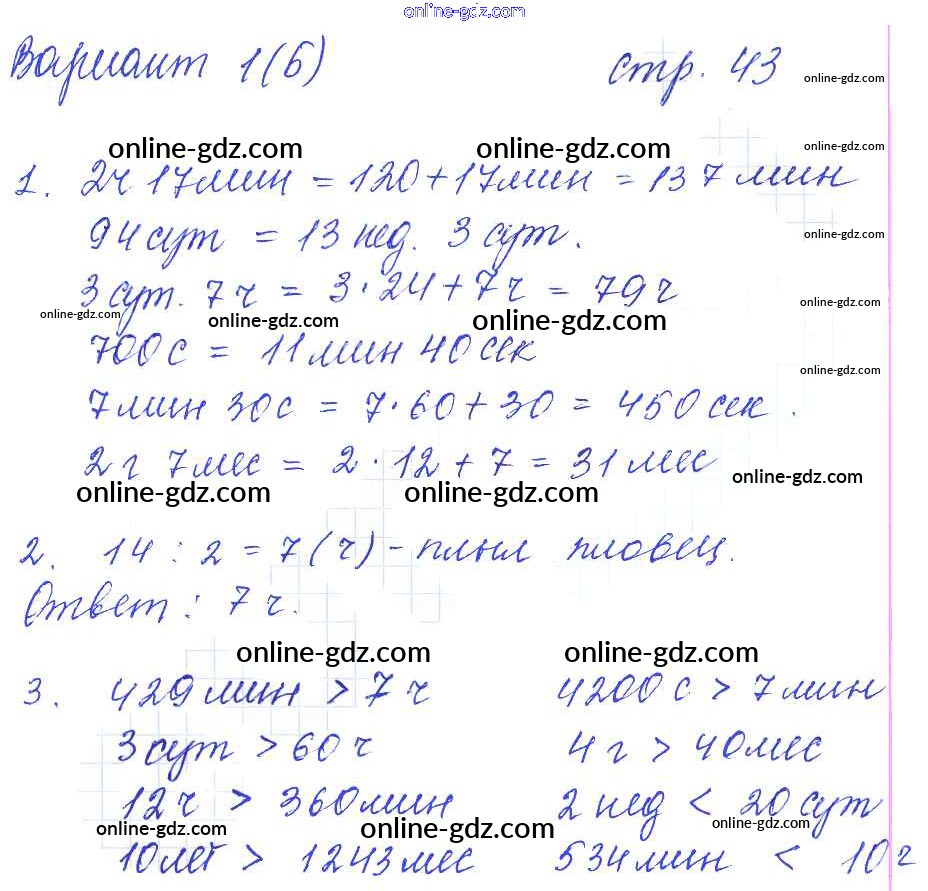 online-gdz.com
Вариант 1(б) стр. 43
online-gdz.com
online-gdz.com online-gdz.com online-gdz.com
1. 2ч 17мин = 120+17мин = 137мин
94сут = 13 нед. 3 сут.
online-gdz.com
3 сут. 7ч = 3·24+7ч = 79ч
online-gdz.com online-gdz.com online-gdz.com online-gdz.com
700с = 11мин 40сек
online-gdz.com
7мин 30с = 7·60+30 = 450сек.
2г 7мес = 2·12+7 = 31мес
online-gdz.com online-gdz.com online-gdz.com
2. 14 : 2 = 7(ч) - плыл пловец.
Ответ: 7ч.
online-gdz.com online-gdz.com
3. 429мин > 7ч 4200с > 7мин
3сут > 60ч 4г > 40мес
12ч > 360мин 2нед < 20сут
online-gdz.com online-gdz.com online-gdz.com
10лет > 1243мес 534мин < 10ч